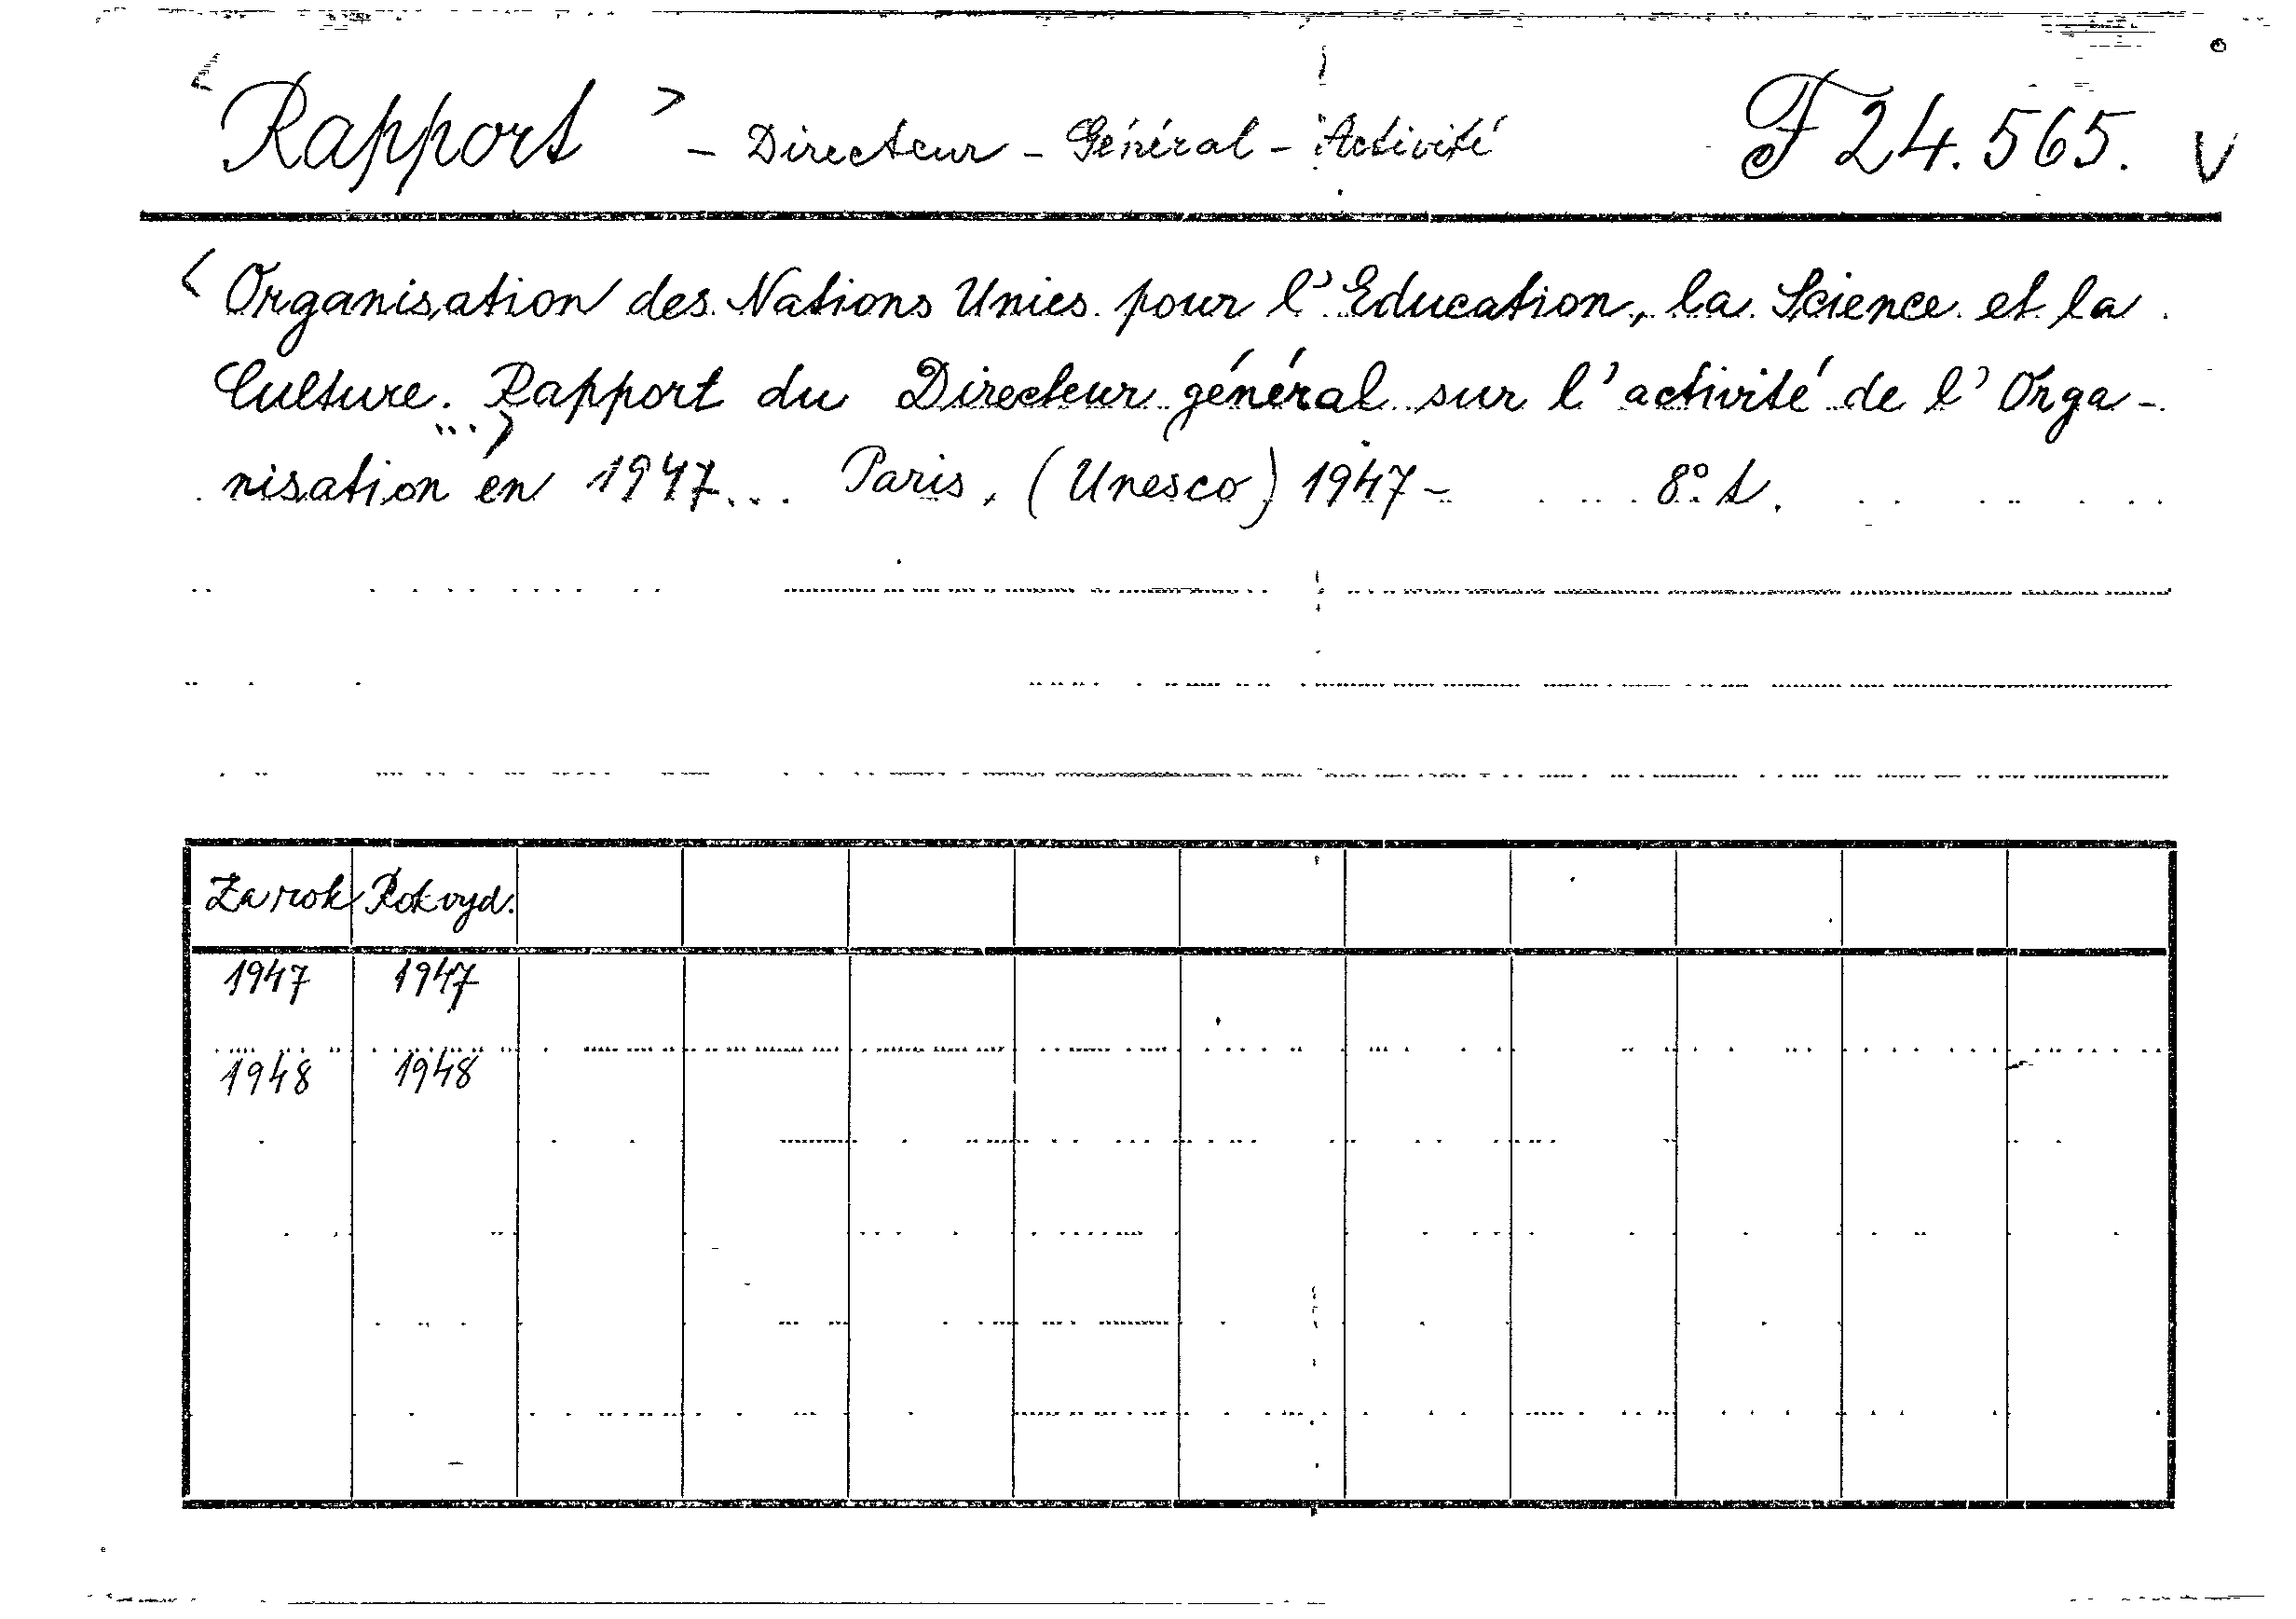 < Rapport > – Directeur – Général – Activité F 24.565. V
< Organisation des Nations Unies pour l'Education, la Science et la
Culture. Rapport du Directeur général sur l'activité de l'Orga-
... >
nisation en 1947... Paris, (Unesco) 1947 – 8° t.
Za rok Rok vyd.
1947 1947
1948 1948